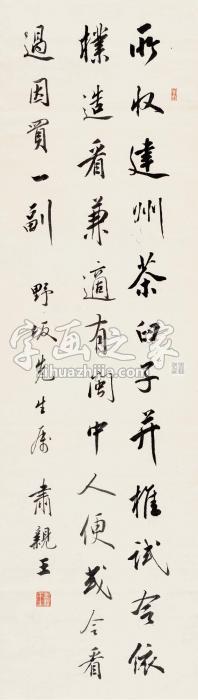 所收建州茶臼子并椎試令依
樣造看兼適有閩中人便或令看
過因買一副
野坂先生属
肅親王
字画之家